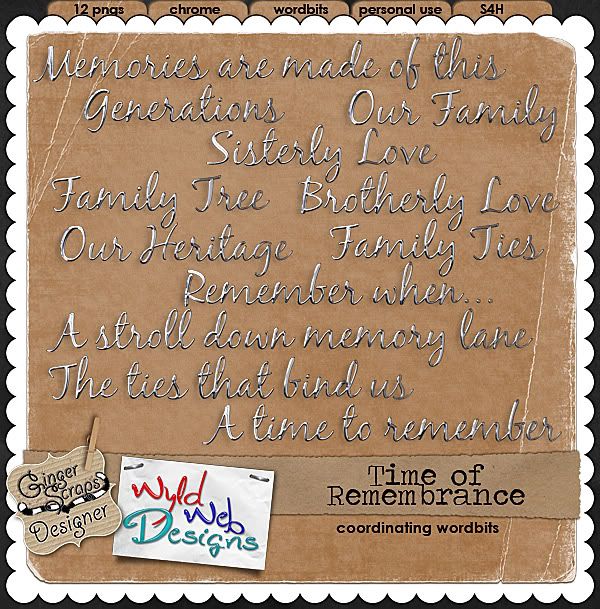 12 pngs chrome wordbits personal use S4H
Memories are made of this
Generations Our Family
Sisterly Love
Family Tree Brotherly Love
Our Heritage Family Ties
Remember when...
A stroll down memory lane
The ties that bind us
A time to remember
Ginger
Scraps
Designer
Wyld
Web
Designs
Time of
Remembrance
coordinating wordbits